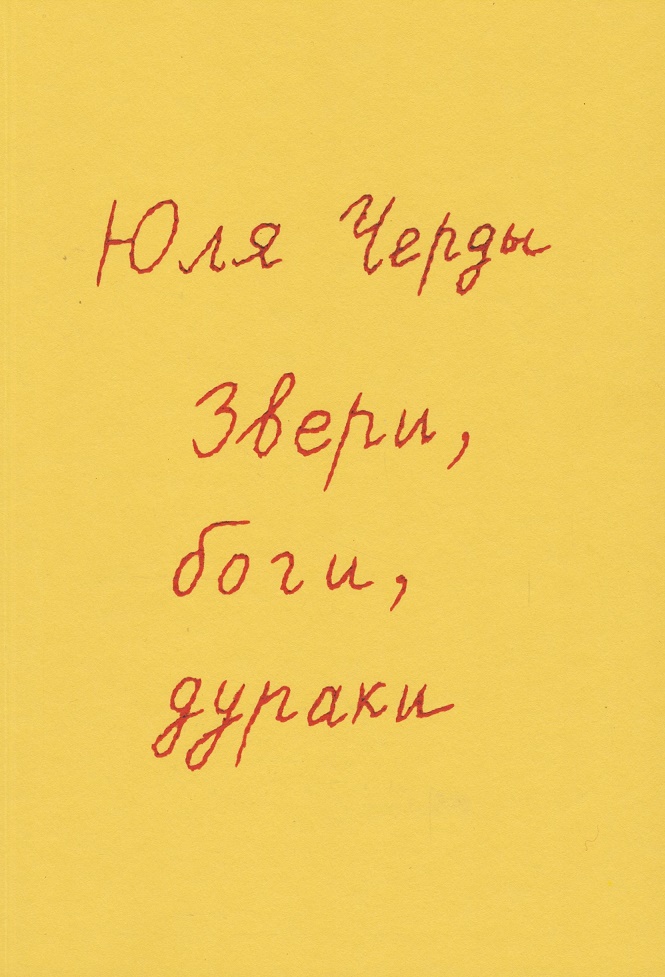 Юля Черды
Звери,
боги,
дураки